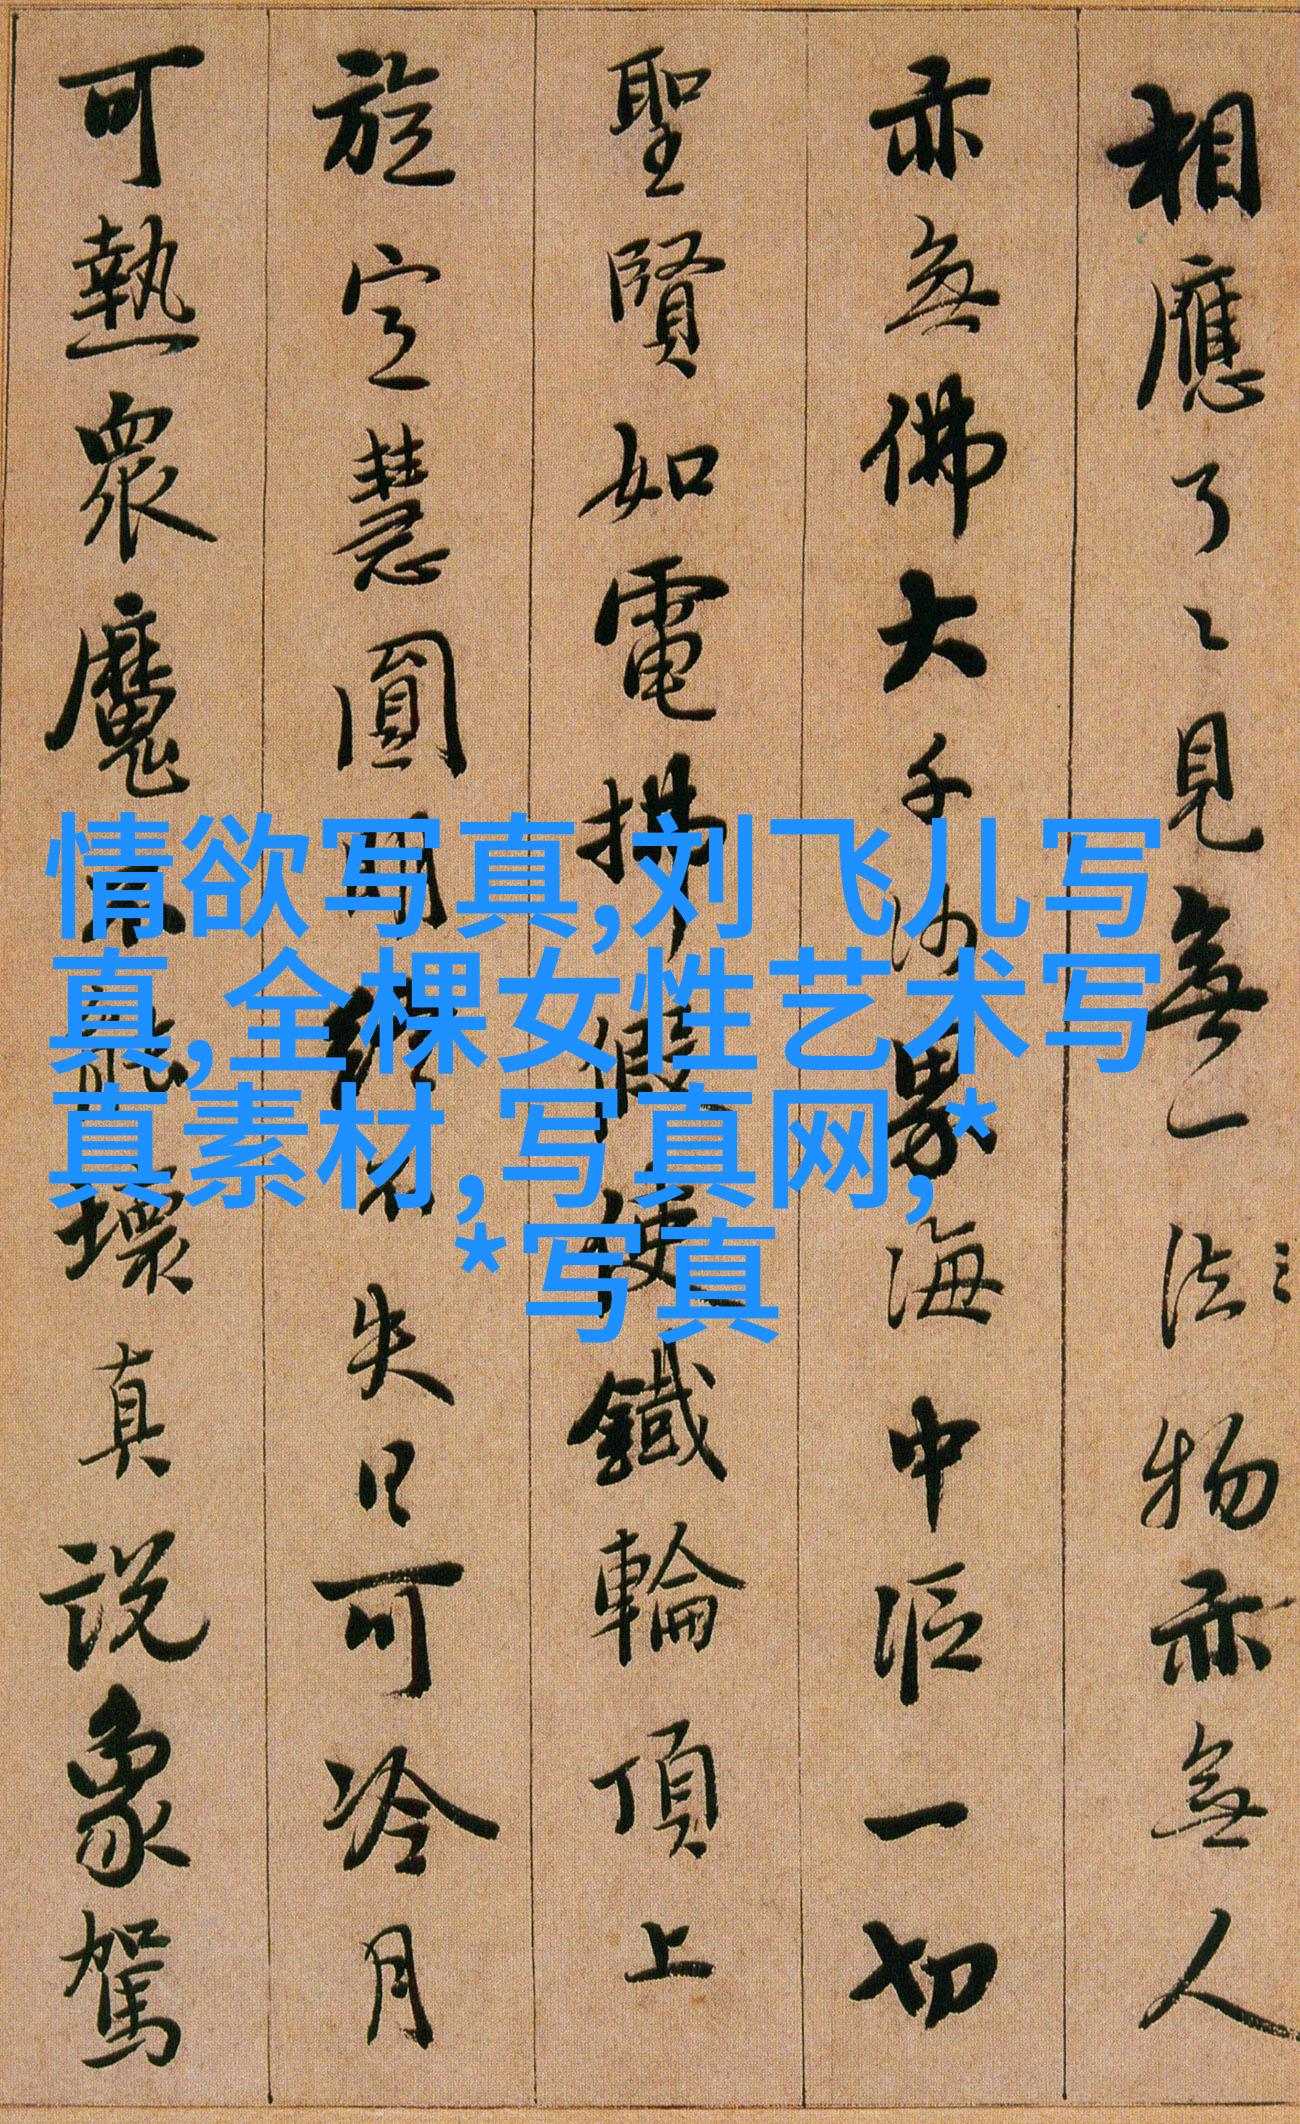 相應了〻見無一法
三
物亦無人
亦無佛大千沙界海中漚一切
聖賢如電拂假使鐵輪頂上
旋定慧圓明終不失日可冷月
可熱眾魔不能壞真說象駕
情欲写真,刘飞儿写
真,全棵女性艺术写
真素材,写真网,*
*写真